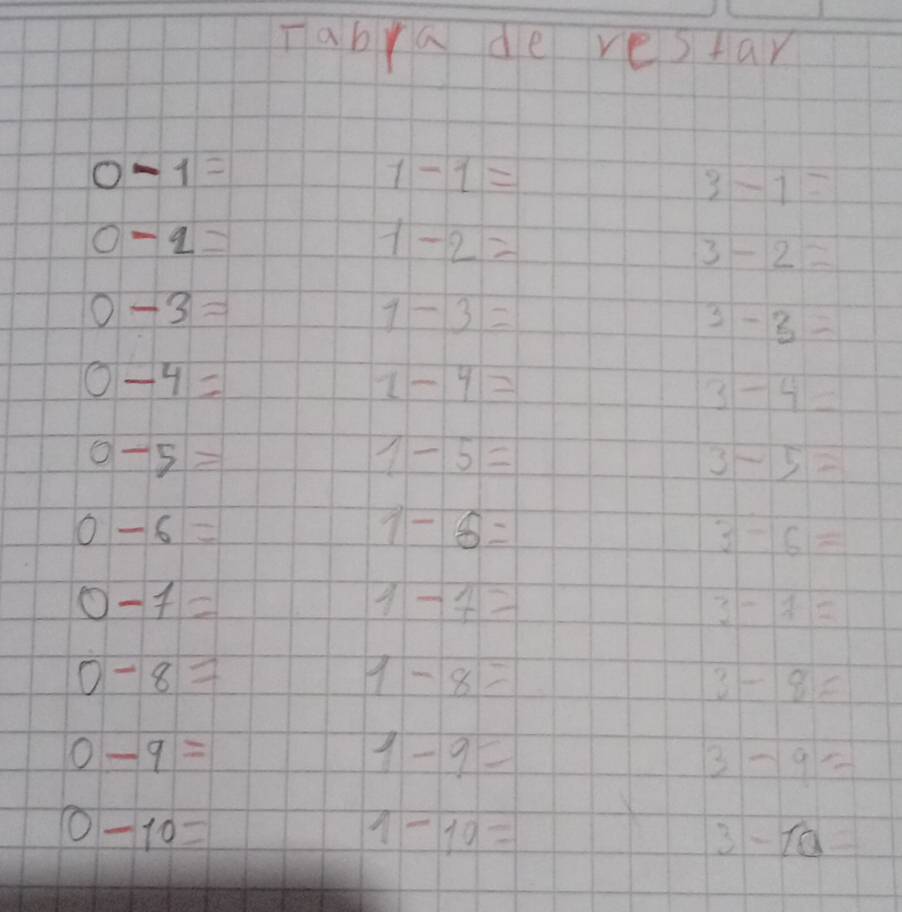 Tabra de restar
0-1= 1-1= 3-1=
0-2= 1-2= 3-2=
0-3= 1-3= 3-3=
0-4= 1-4= 3-4=
0-5= 1-5= 3-5=
0-6= 1-6= 3-6=
0-7= 1-7= 3-7=
0-8= 1-8= 3-8=
0-9= 1-9= 3-9=
0-10= 1-10= 3-10=